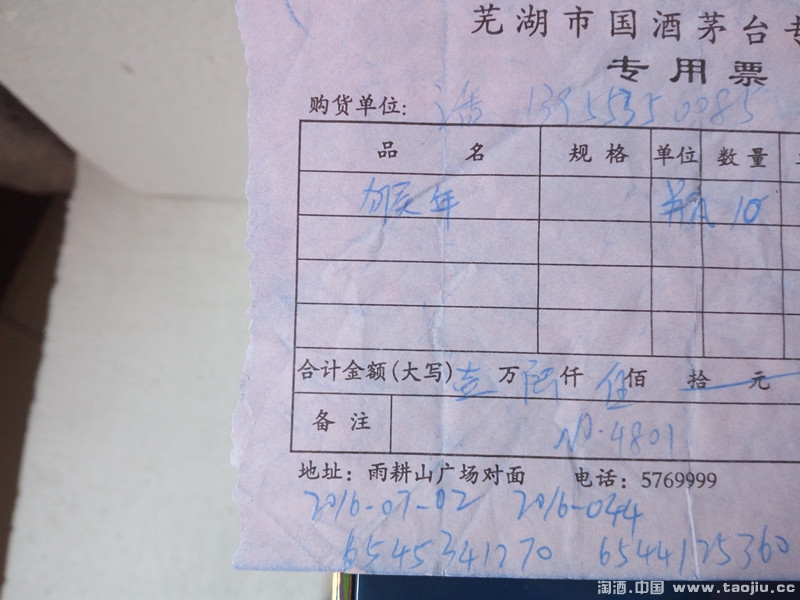 芜湖市国酒茅台专
专用票
购货单位: 13955350085
品 名 规格 单位 数量
猴年 瓶 10
合计金额(大写) 壹万 陆仟 伍佰 拾 元
备 注 No.4801
地址: 雨耕山广场对面 电话: 5769999
2016-07-02 2016-044
6545341270 6544125360
淘酒.中国 www.taojiu.cc